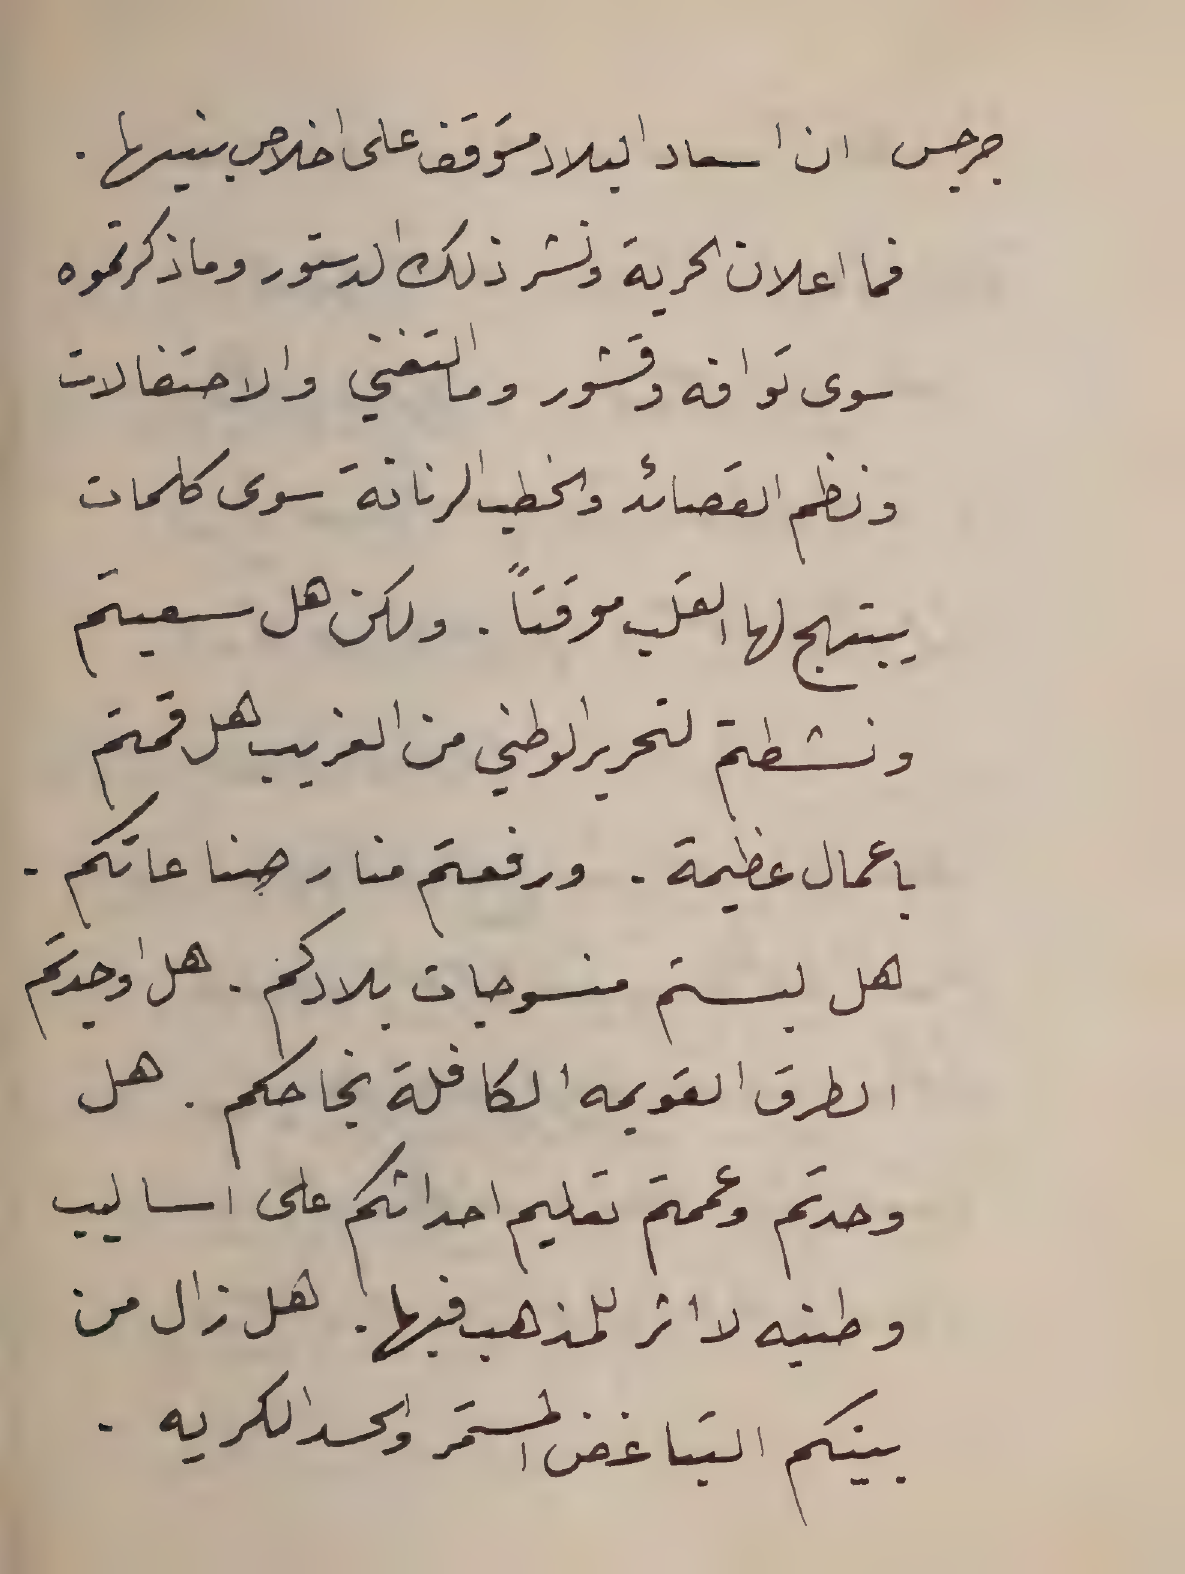 جرجس ان اسعاد البلاد متوقف على اخلاص بنيها .
فما اعلان الحرية ونشر ذلك الدستور وما ذكرتموه
سوى توافه وقشور وما التغني والاحتفالات
ونظم القصائد والخطب الرنانة سوى كلمات
يبتهج لها القلب موقتاً . ولكن هل سعيتم
ونشطتم لتحرير الوطني من الغريب هل قمتم
باعمال عظيمة . ورفعتم منار صناعاتكم .
هل لبستم منسوجات بلادكم . هل اوجدتم
الطرق القويمه الكافلة نجاحكم . هل
وحدتم وعممتم تعليم احداثكم على اساليب
وطنيه لا اثر للمذهب فيها . هل زال من
بينكم التباغض المستمر والحسد الكريه .